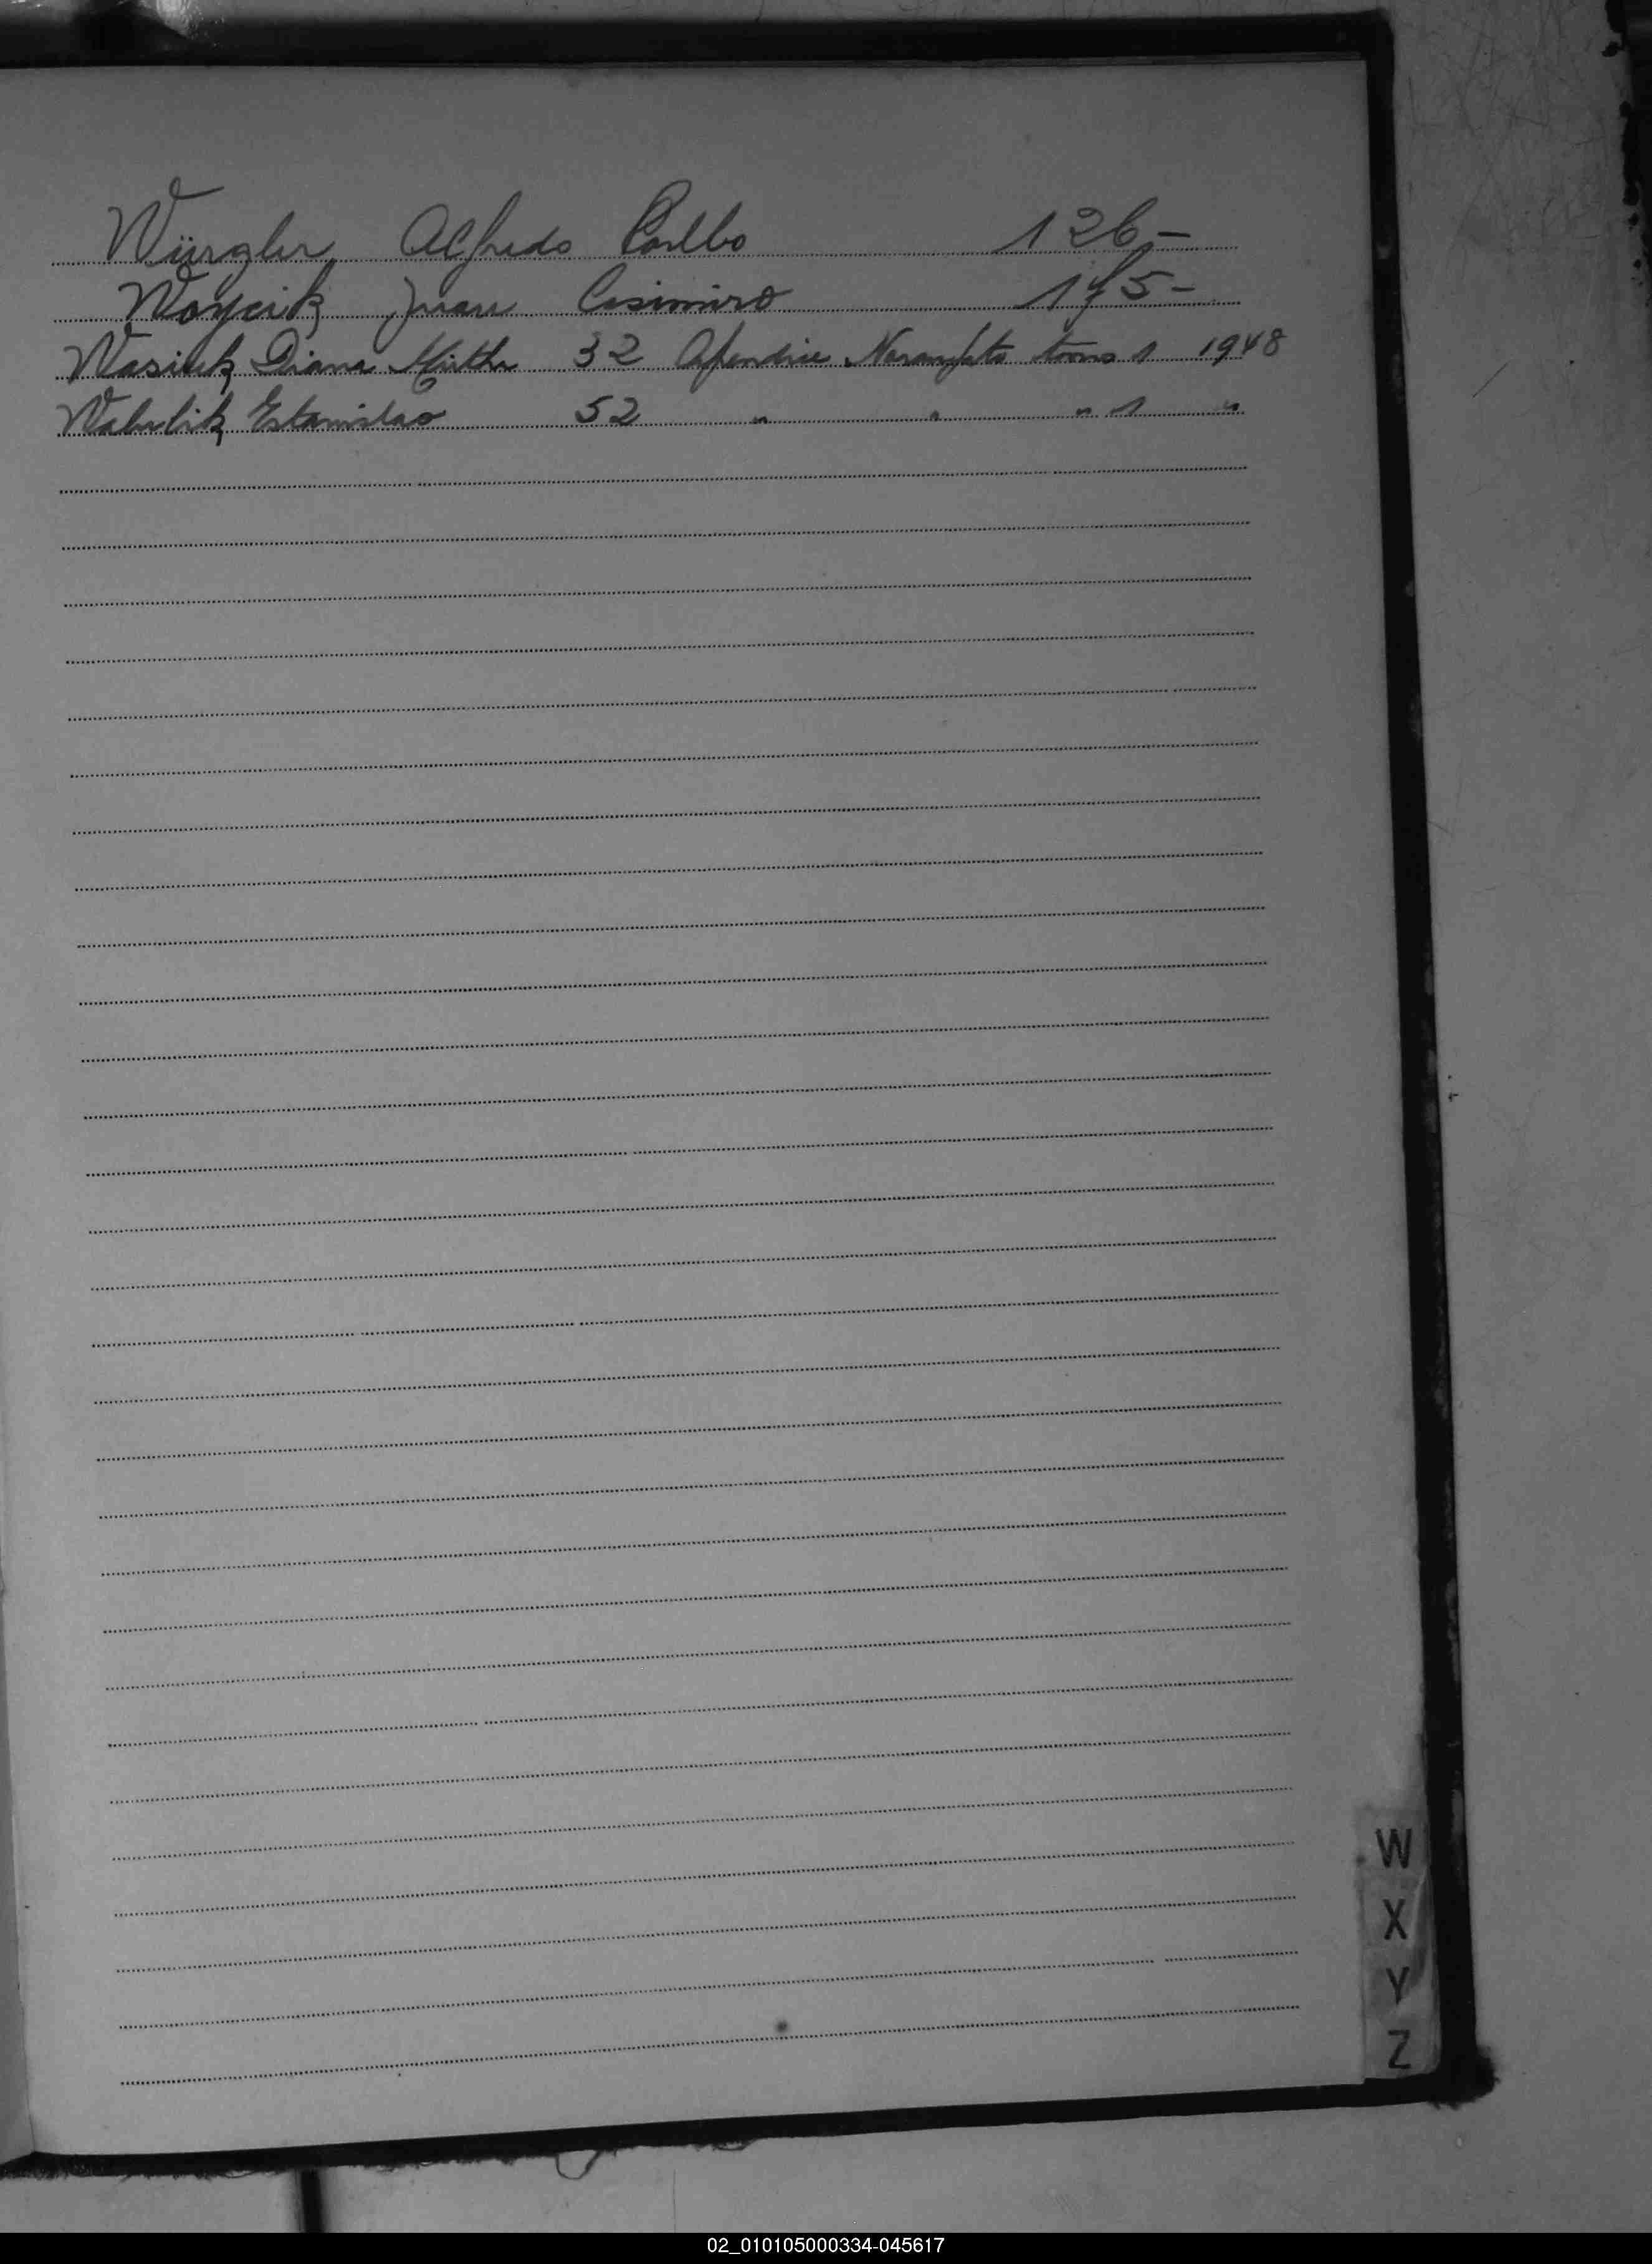 Würgler Alfredo 126-
Woycik Juan Casimiro 175-
Wasiuk Diana Mirtha 32 Apendice Naranjito tomo 1 1948
Estanislao 52 " " " 1 "
W
X
Y
Z
02_010105000334-045617